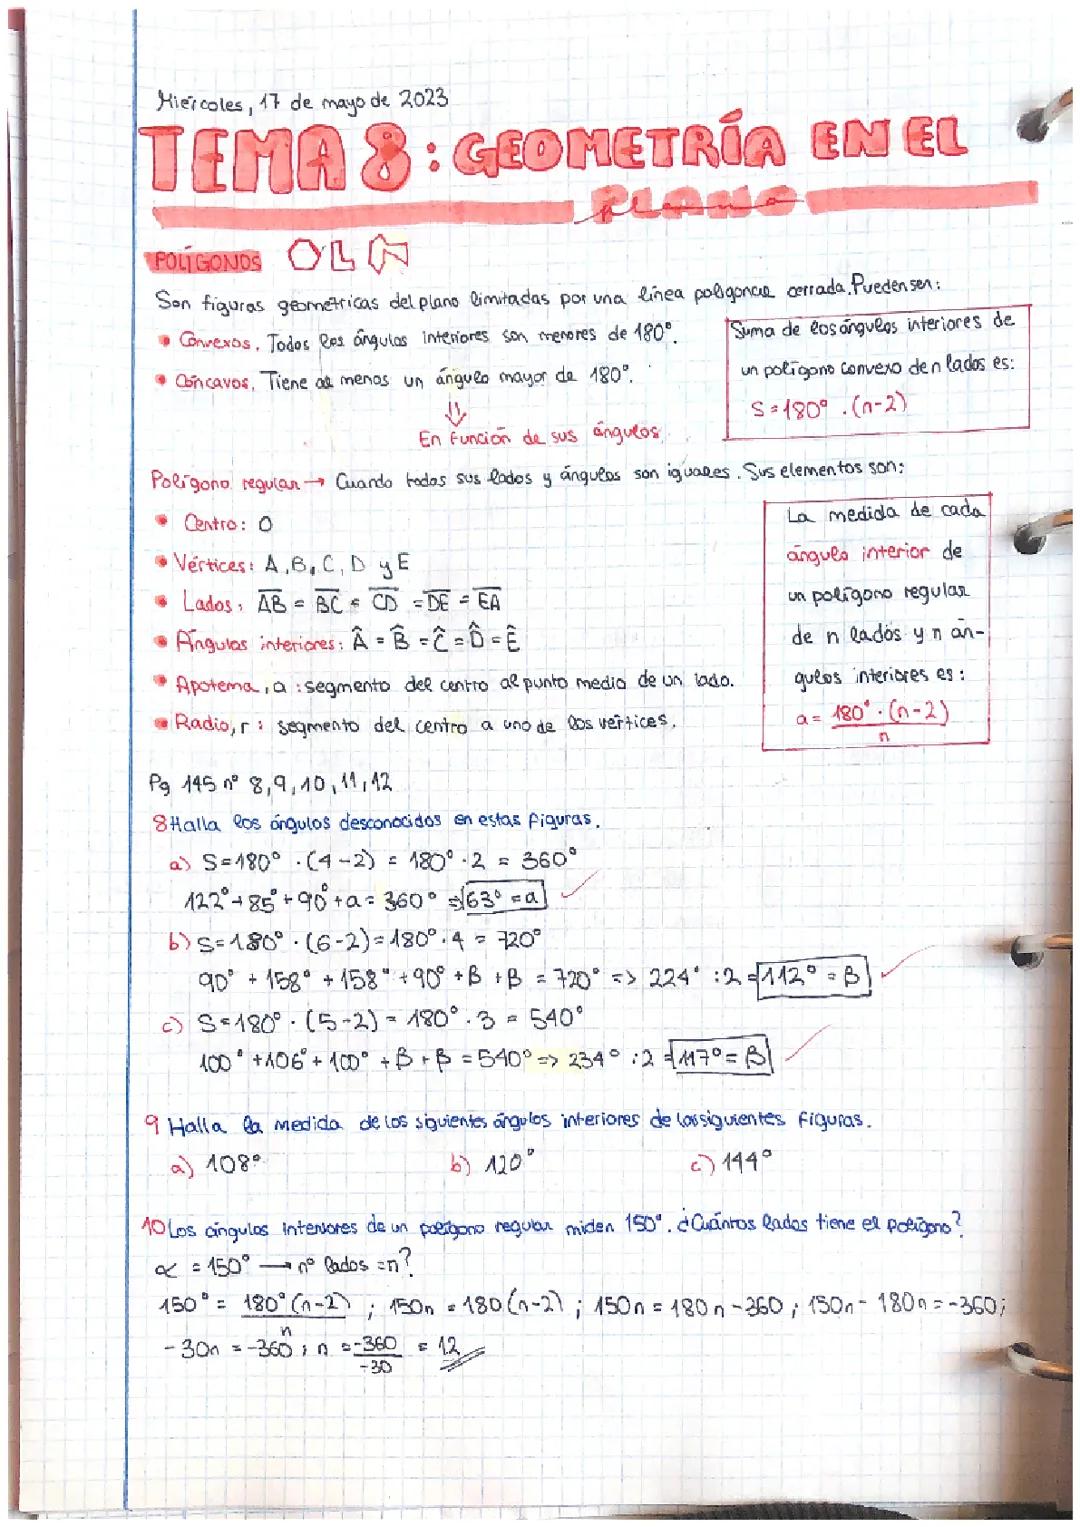 Miércoles, 17 de mayo de 2023
TEMA 8: GEOMETRÍA EN EL
PLANO
POLÍGONOS
Son figuras geométricas del plano limitadas por una línea poligonal cerrada. Pueden ser:
• Convexos. Todos los ángulos interiores son menores de 180°.
• Cóncavos. Tiene al menos un ángulo mayor de 180°.
⇓
En función de sus ángulos.
Suma de los ángulos interiores de
un polígono convexo de n lados es:
S = 180° · (n-2)
Polígono regular → Cuando todos sus lados y ángulos son iguales. Sus elementos son:
• Centro: O
• Vértices: A, B, C, D y E
• Lados: A̅B̅ = B̅C̅ = C̅D̅ = D̅E̅ = E̅A̅
• Ángulos interiores: Â = B̂ = Ĉ = D̂ = Ê
• Apotema, a: segmento del centro al punto medio de un lado.
• Radio, r: segmento del centro a uno de los vértices.
La medida de cada
ángulo interior de
un polígono regular
de n lados y n án-
gulos interiores es:
a = 180° · (n-2)
n
Pg 145 nº 8, 9, 10, 11, 12
8 Halla los ángulos desconocidos en estas figuras.
a) S = 180° · (4-2) = 180° · 2 = 360°
122° + 85° + 90° + a = 360° => 63° = a
b) S = 180° · (6-2) = 180° · 4 = 720°
90° + 158° + 158° + 90° + B + B = 720° => 224° : 2 = 112° = B
c) S = 180° · (5-2) = 180° · 3 = 540°
100° + 106° + 100° + B + B = 540° => 234° : 2 = 117° = B
9 Halla la medida de los siguientes ángulos interiores de las siguientes figuras.
a) 108° b) 120° c) 144°
10 Los ángulos interiores de un polígono regular miden 150°. ¿Cuántos lados tiene el polígono?
α = 150° → nº lados = n?
150° = 180° (n-2) ; 150n = 180 (n-2) ; 150n = 180n - 360 ; 150n - 180n = -360;
n
-30n = -360 ; n = -360 = 12
-30